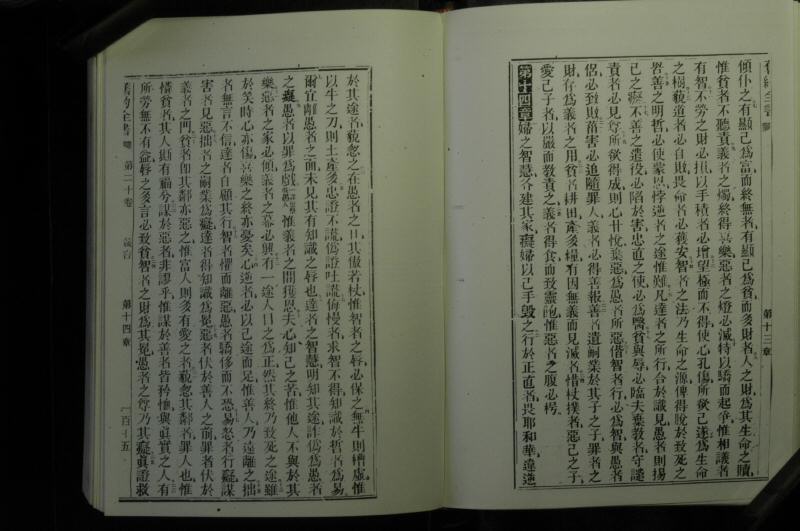 舊約全書
第十三章
傾仆之有顯己爲富而終無者有顯己爲貧而多財者人之財爲其生命之贖
惟貧者不聽責義者之燭終得喜樂惡者之燈必滅特以驕而起爭惟相議者
有智不勞之財必損以手積者必增望極而不得使心孔傷所欲已達爲生命
之樹藐道者必自敗畏命者必獲安智者之法乃生命之源俾得脫於致死之
咎善之明哲必使蒙恩悖逆者之途惟難凡達者之所行合於識見愚者則揚
己之癡不善之遣役必陷於害忠直之使必爲醫貧與辱必臨夫棄教者守譴
責者必見尊所欲得成則心甘悅棄惡爲愚者所惡偕智者行必爲智與愚者
侶必致敗蓄害必追隨罪人義者必得善報善者遺嗣業於其子之子罪者之
財存爲義者之用貧者耕田產多糧有因無義而見滅者惜杖撲者惡己之子
愛己子者以嚴而教責之義者得食而致靈飽惟惡者之腹必枵
第十四章 婦之智慧各建其家癡婦以己手毀之行於正直者畏耶和華違逆
於其途者藐忽之在愚者之口其傲若杖惟智者之唇必保之無牛則槽虛惟
以牛之力則土產多忠證不謊僞證吐謊侮慢者求智不得知識於哲者爲易
爾宜離愚者之面未見其有知識之唇也達者之智慧明知其途詐僞爲愚者
之癡愚者以罪爲戲惟義者之間獲恩夫心知己之苦惟他人不與於其
樂惡者之家必傾義者之幕必興有一途人目之爲正然其終乃致死之途雖
於笑時心亦傷喜樂之終亦憂矣心逆者必以己途而足惟善人乃遠離之拙
者無言不信達者自顧其行智者懼而離惡愚者驕侈而不惑易怒者行癡謀
害者見惡拙者之嗣業爲癡達者得知識爲冕惡者伏於善人之前罪者伏於
義者之門貧者卽其鄰亦惡之惟富人則多有愛之者藐忽其鄰者罪人也惟
憐貧者其人斯有福兮謀於惡者非謬乎惟謀於善者皆矜憐與眞實之人有
所勞無不有益唇之多言必致貧智者之財爲其冕愚者之尊乃其癡眞證救
舊約全書 第二十卷 箴言 第十四章 一百十五